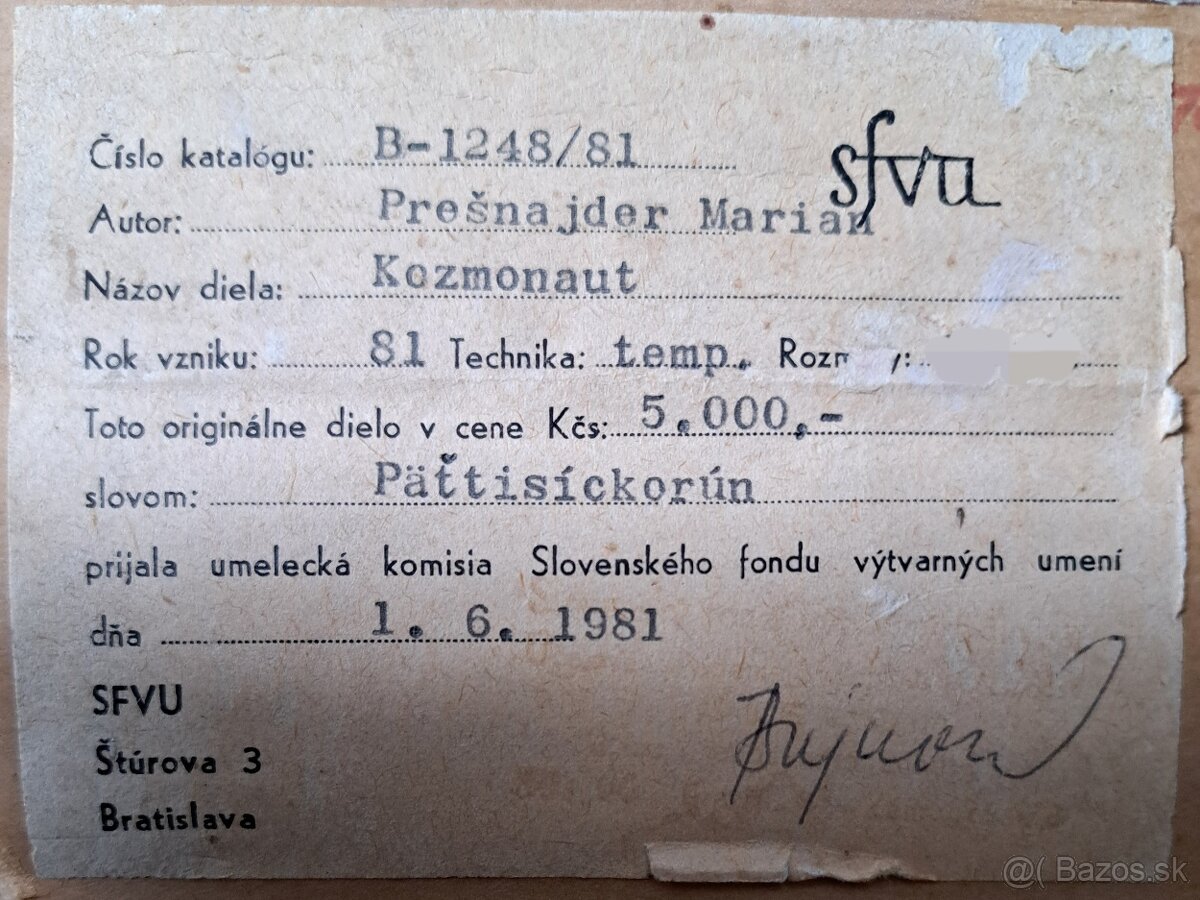 sfvu
Číslo katalógu: B-1248/81
Autor: Prešnajder Marian
Názov diela: Kozmonaut
Rok vzniku: 81 Technika: temp.
Toto originálne dielo v cene Kčs: 5.000,-
slovom: Päťtisíckorún
prijala umelecká komisia Slovenského fondu výtvarných umení
dňa 1. 6. 1981
SFVU
Štúrova 3
Bratislava
@( Bazos.sk